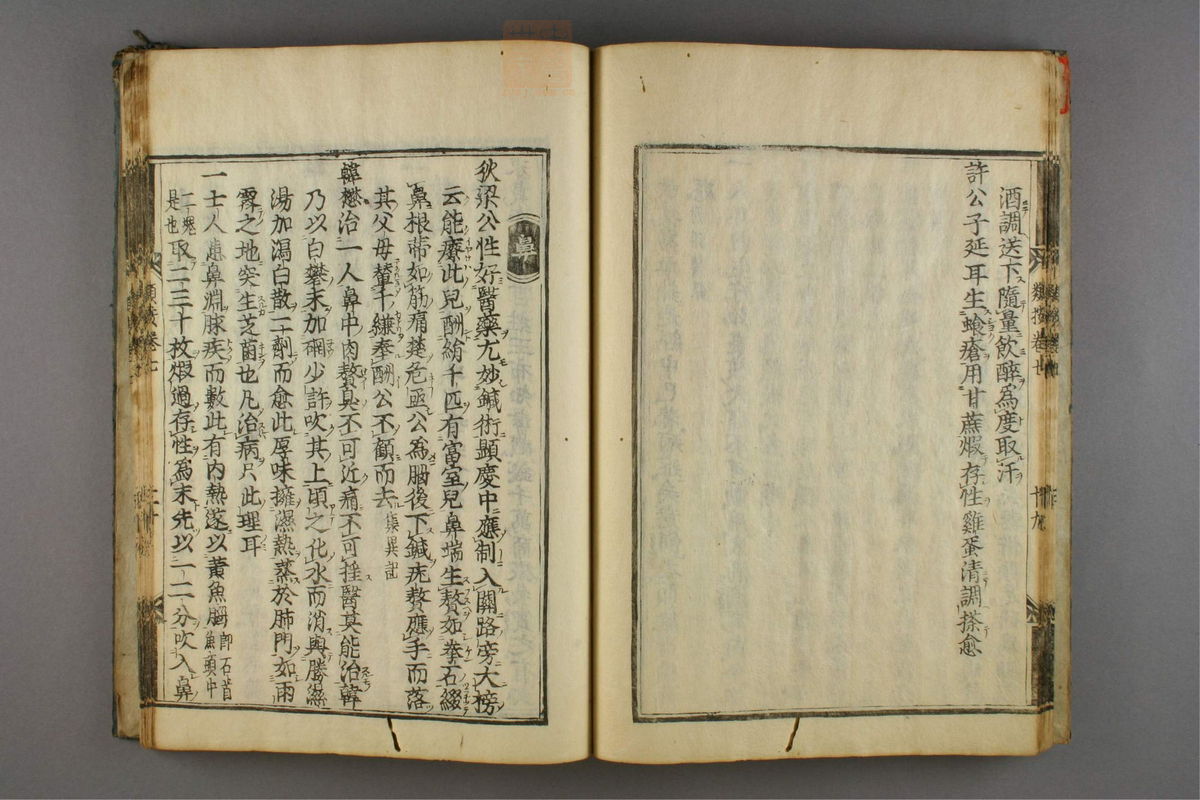 酒調送下隨量飲醉為度取汗
許公子延耳生瘡用甘蔗煆存性雞蛋清調搽愈
鼻
狄梁公性好醫藥尤妙鍼術顯慶中應制入關路旁大榜
云能療此兒酬絹千匹有富室兒鼻端生贅如拳石綴
鼻根蒂如筯痛楚危亟公為腦後下鍼疣贅應手而落
其父母輦千縑奉酬公不顧而去集異記
韓懋治一人鼻中肉贅臭不可近痛不可搖醫莫能治韓
乃以白礬末加硇少許吹其上頃之化水而消與勝濕
湯加瀉白散二劑而愈此厚味擁濕熱蒸於肺門如雨
霽之地突生芝菌也凡治病只此理耳
一士人患鼻淵腺疾而數此有內熱遂以黃魚腦即石首魚頭中
二塊是也取二三十枚煆過存性為末先以一二分吹入鼻